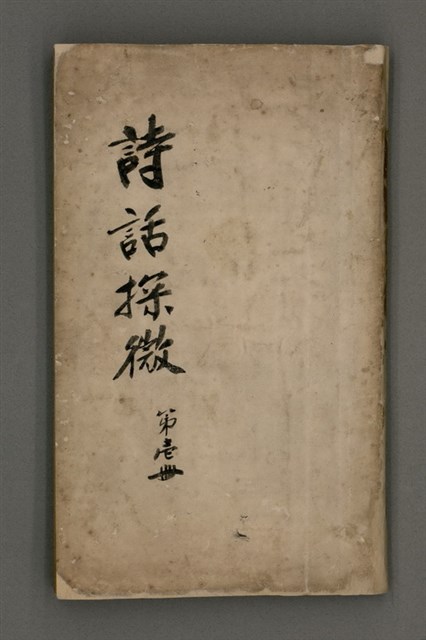 詩話探微
第壹冊